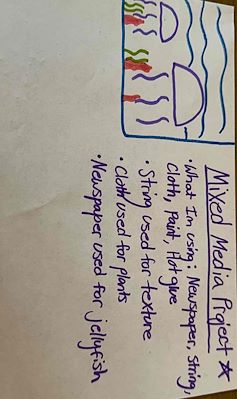 Mixed Media Project ☆
• What Im using: Newspaper, String,
Cloth, Paint, Hot glue
• String used for texture
• Cloth used for plants
• Newspaper used for jellyfish